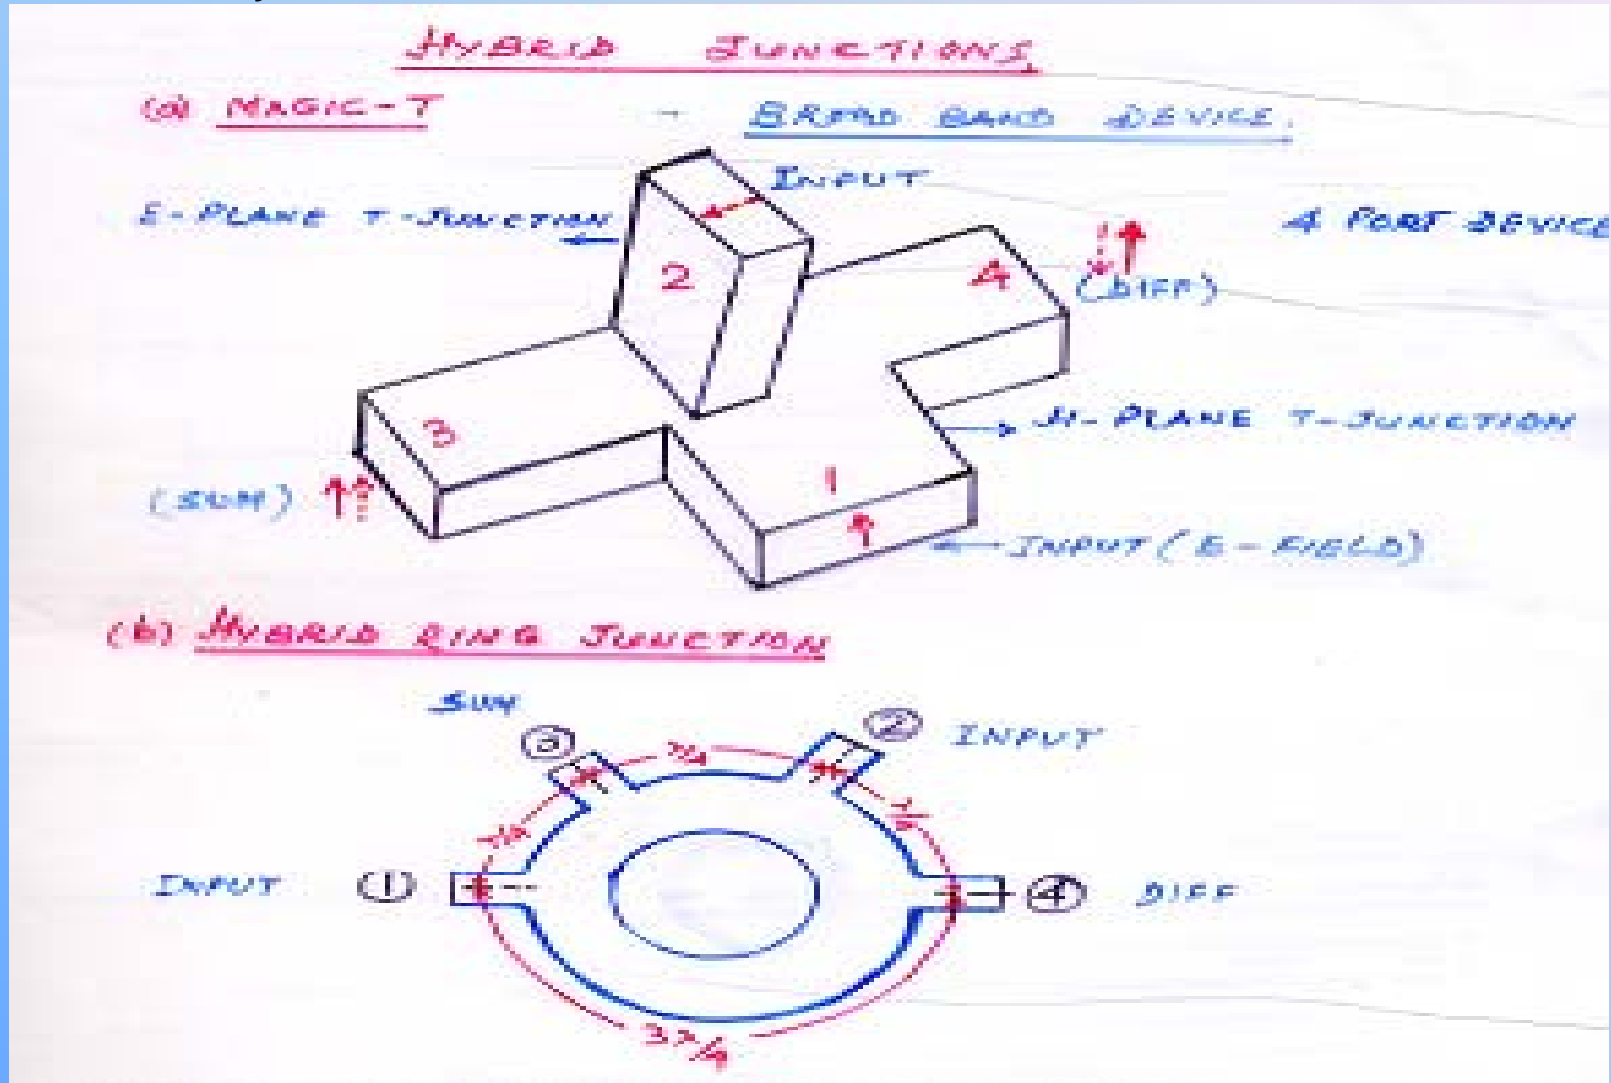 HYBRID JUNCTIONS
(a) MAGIC-T - BROAD BAND DEVICE.
INPUT
E-PLANE T-JUNCTION
4 PORT DEVICE
2
4
(DIFF)
3
H-PLANE T-JUNCTION
1
(SUM)
INPUT (E-FIELD)
(b) HYBRID RING JUNCTION
SUM
3
λ/4
2
INPUT
λ/4
λ/4
INPUT
1
4
DIFF
3λ/4